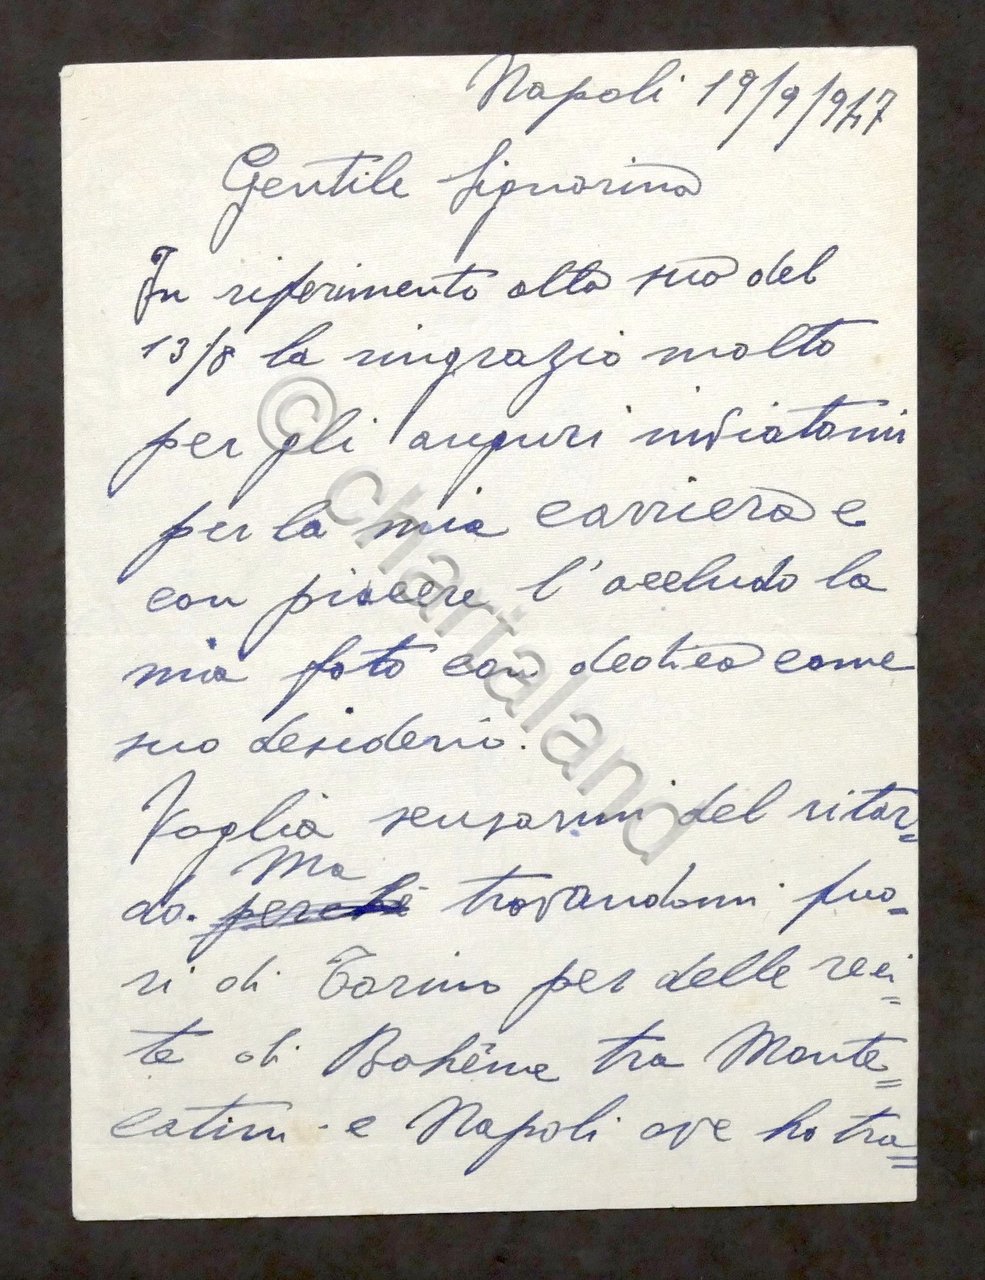 Napoli 19/9/947
Gentile Signorina
In riferimento alla sua del
13/8 la ringrazio molto
per gli auguri inviatomi
per la mia carriera e
con piacere l'accludo la
mia foto con dedica come
suo desiderio.
Voglia scusarmi del ritar=
Ma
do. perchè trovandomi fuo=
ri di Torino per delle reci=
te di Bohême tra Monte=
catini e Napoli ove ho tra=
© chartaland